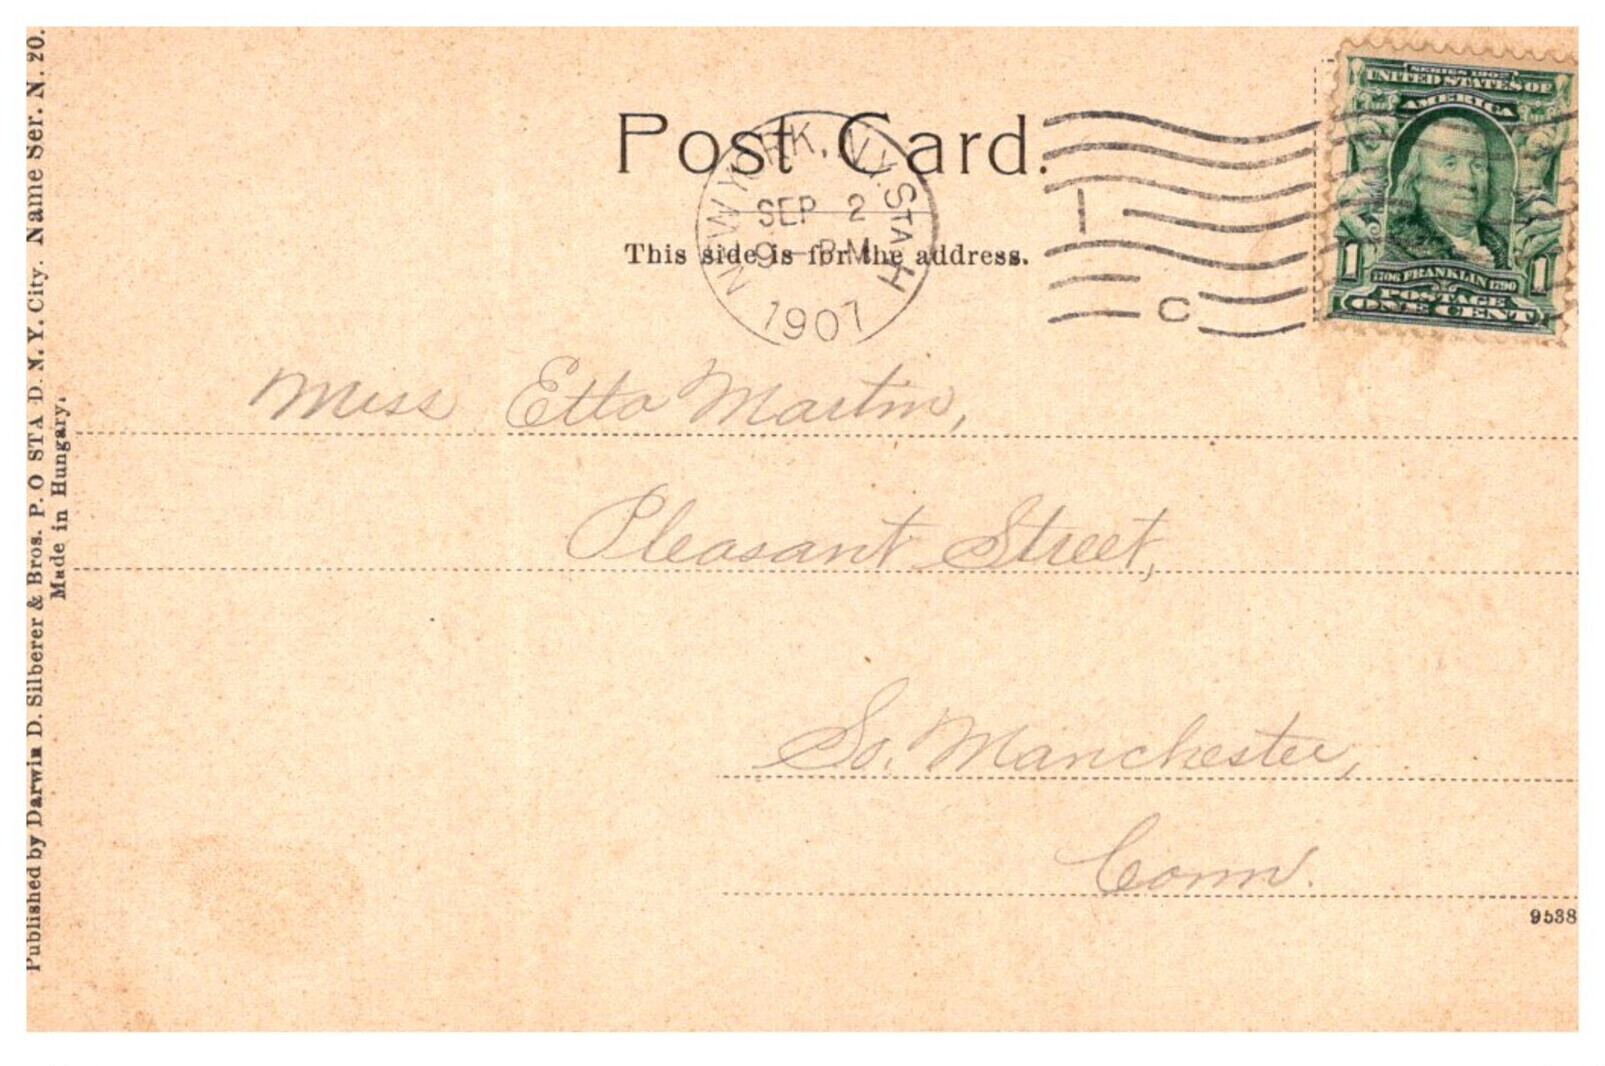 Post Card.
NEW YORK, N.Y. STA. H
SEP 2
9 - PM
1907
1 C
This side is for the address.
SERIES 1902
UNITED STATES OF
AMERICA
1706 FRANKLIN 1790
1 1
POSTAGE
ONE CENT
Miss Etta Martin,
Pleasant Street,
So. Manchester,
Conn.
9538
Published by Darwin D. Silberer & Bros. P. O STA D. N. Y. City. Name Ser. N. 20.
Made in Hungary.